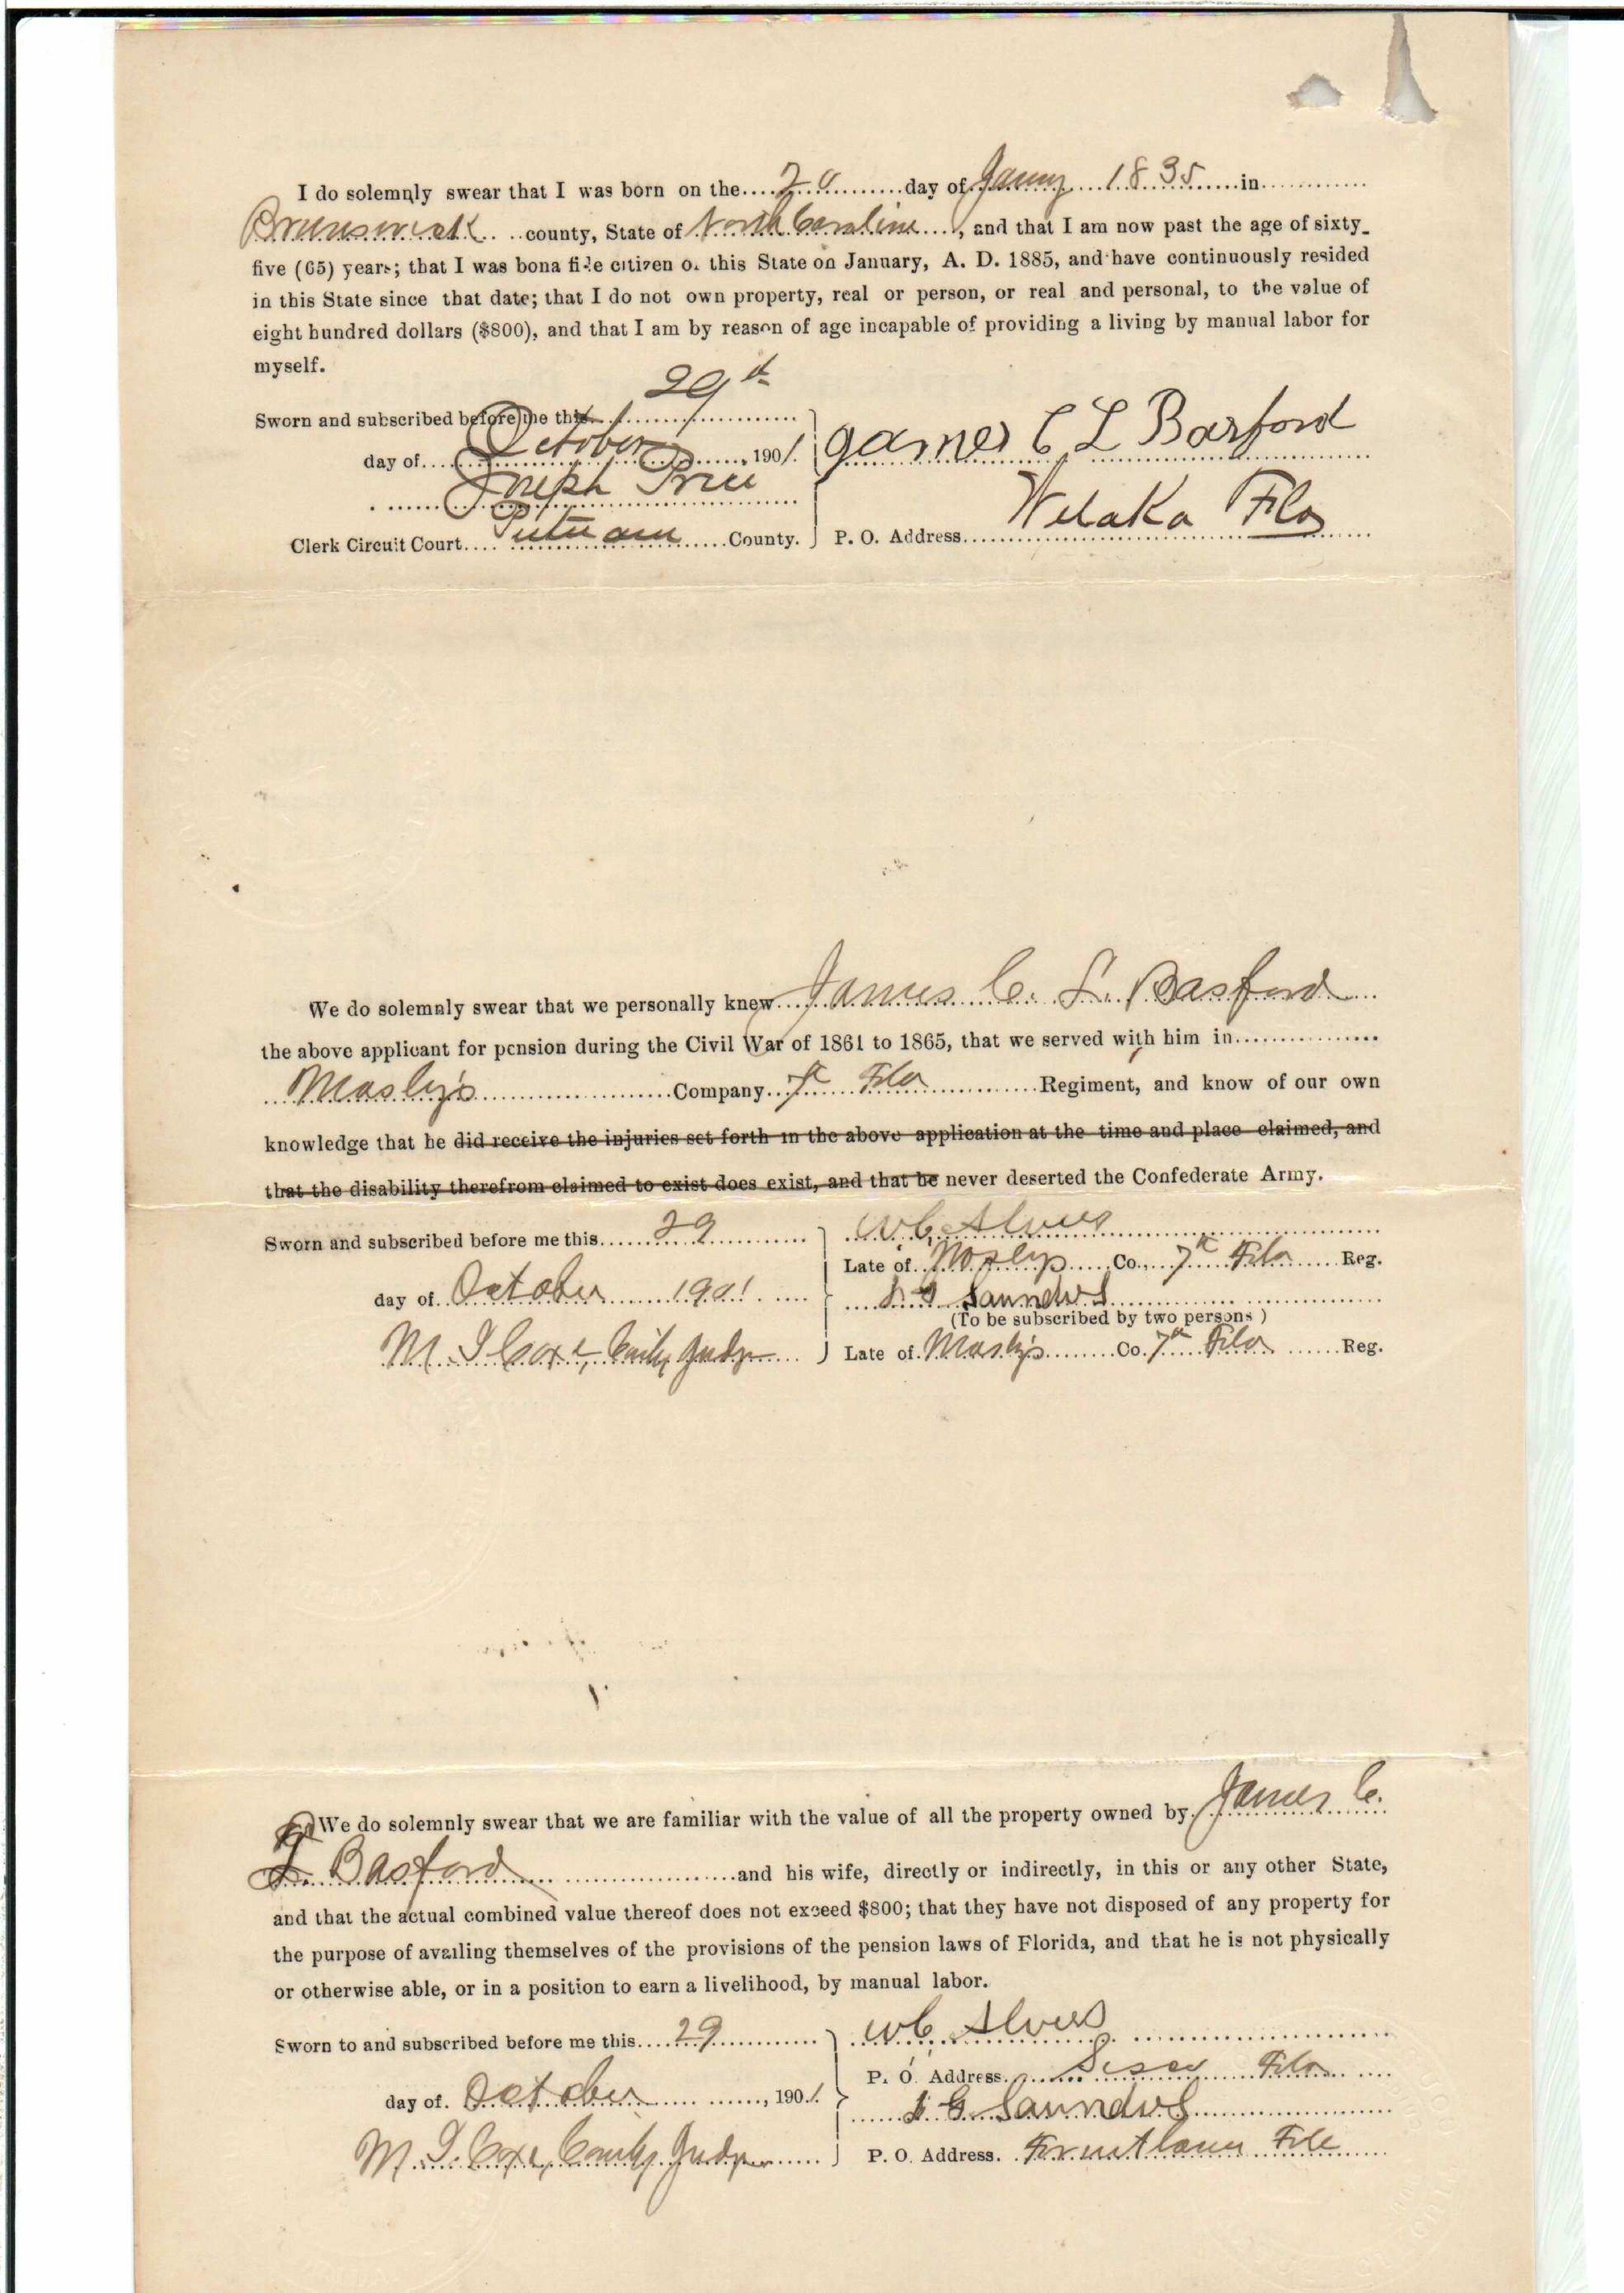 I do solemnly swear that I was born on the 20 day of Janny 1835 in
Brunswick county, State of North Caroline, and that I am now past the age of sixty-
five (65) years; that I was bona fide citizen of this State on January, A. D. 1885, and have continuously resided
in this State since that date; that I do not own property, real or person, or real and personal, to the value of
eight hundred dollars ($800), and that I am by reason of age incapable of providing a living by manual labor for
myself.
Sworn and subscribed before me this 29th
day of October, 1901. James C L Basford
Joseph Price
Clerk Circuit Court Putnam County. P. O. Address Welaka Fla
We do solemnly swear that we personally knew James C. L. Basford
the above applicant for pension during the Civil War of 1861 to 1865, that we served with him in
Mosly's Company 7th Fla Regiment, and know of our own
knowledge that he did receive the injuries set forth in the above application at the time and place claimed, and
that the disability therefrom claimed to exist does exist, and that he never deserted the Confederate Army.
Sworn and subscribed before me this 29 W C Alvers
Late of Moslys Co., 7th Fla Reg.
day of October 1901 Saunders
(To be subscribed by two persons)
M. I. Coxe, County Judge Late of Mosly's Co. 7th Fla Reg.
We do solemnly swear that we are familiar with the value of all the property owned by James C.
L. Basford and his wife, directly or indirectly, in this or any other State,
and that the actual combined value thereof does not exceed $800; that they have not disposed of any property for
the purpose of availing themselves of the provisions of the pension laws of Florida, and that he is not physically
or otherwise able, or in a position to earn a livelihood, by manual labor.
Sworn to and subscribed before me this 29 W C Alvers
P. O. Address Sisco Fla
day of October, 1901. G Saunders
M. I. Coxe, County Judge P. O. Address. Fruitland Fla